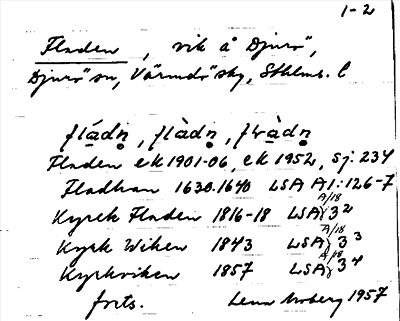 1-2
Fladen, vik å Djurö,
Djurö sn, Värmdö skg, Sthlms. l
fládn̥, flàdn̥, fLàdn̥
Fladen ek 1901-06, ek 1952, sj. 234
Fladhan 1630.1640 LSA A1:126-7
Kyrck Fladen 1816-18 LSA A/18 3²
Kyrk Wiken 1843 LSA A/18 3³
Kyrkviken 1857 LSA A/18 3⁴
forts. Lena Moberg 1957